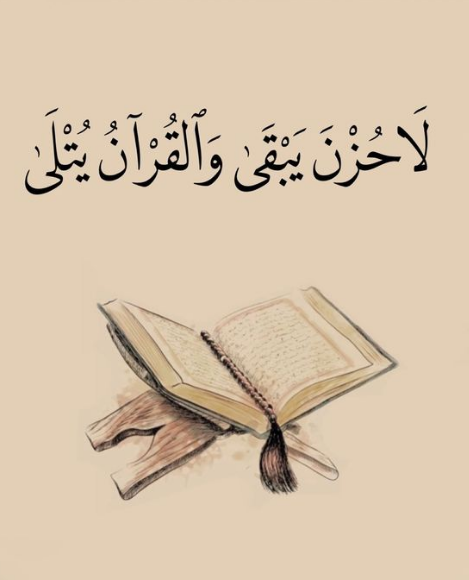 لَا حُزْنَ يَبْقَىٰ وَٱلْقُرْآنُ يُتْلَىٰ